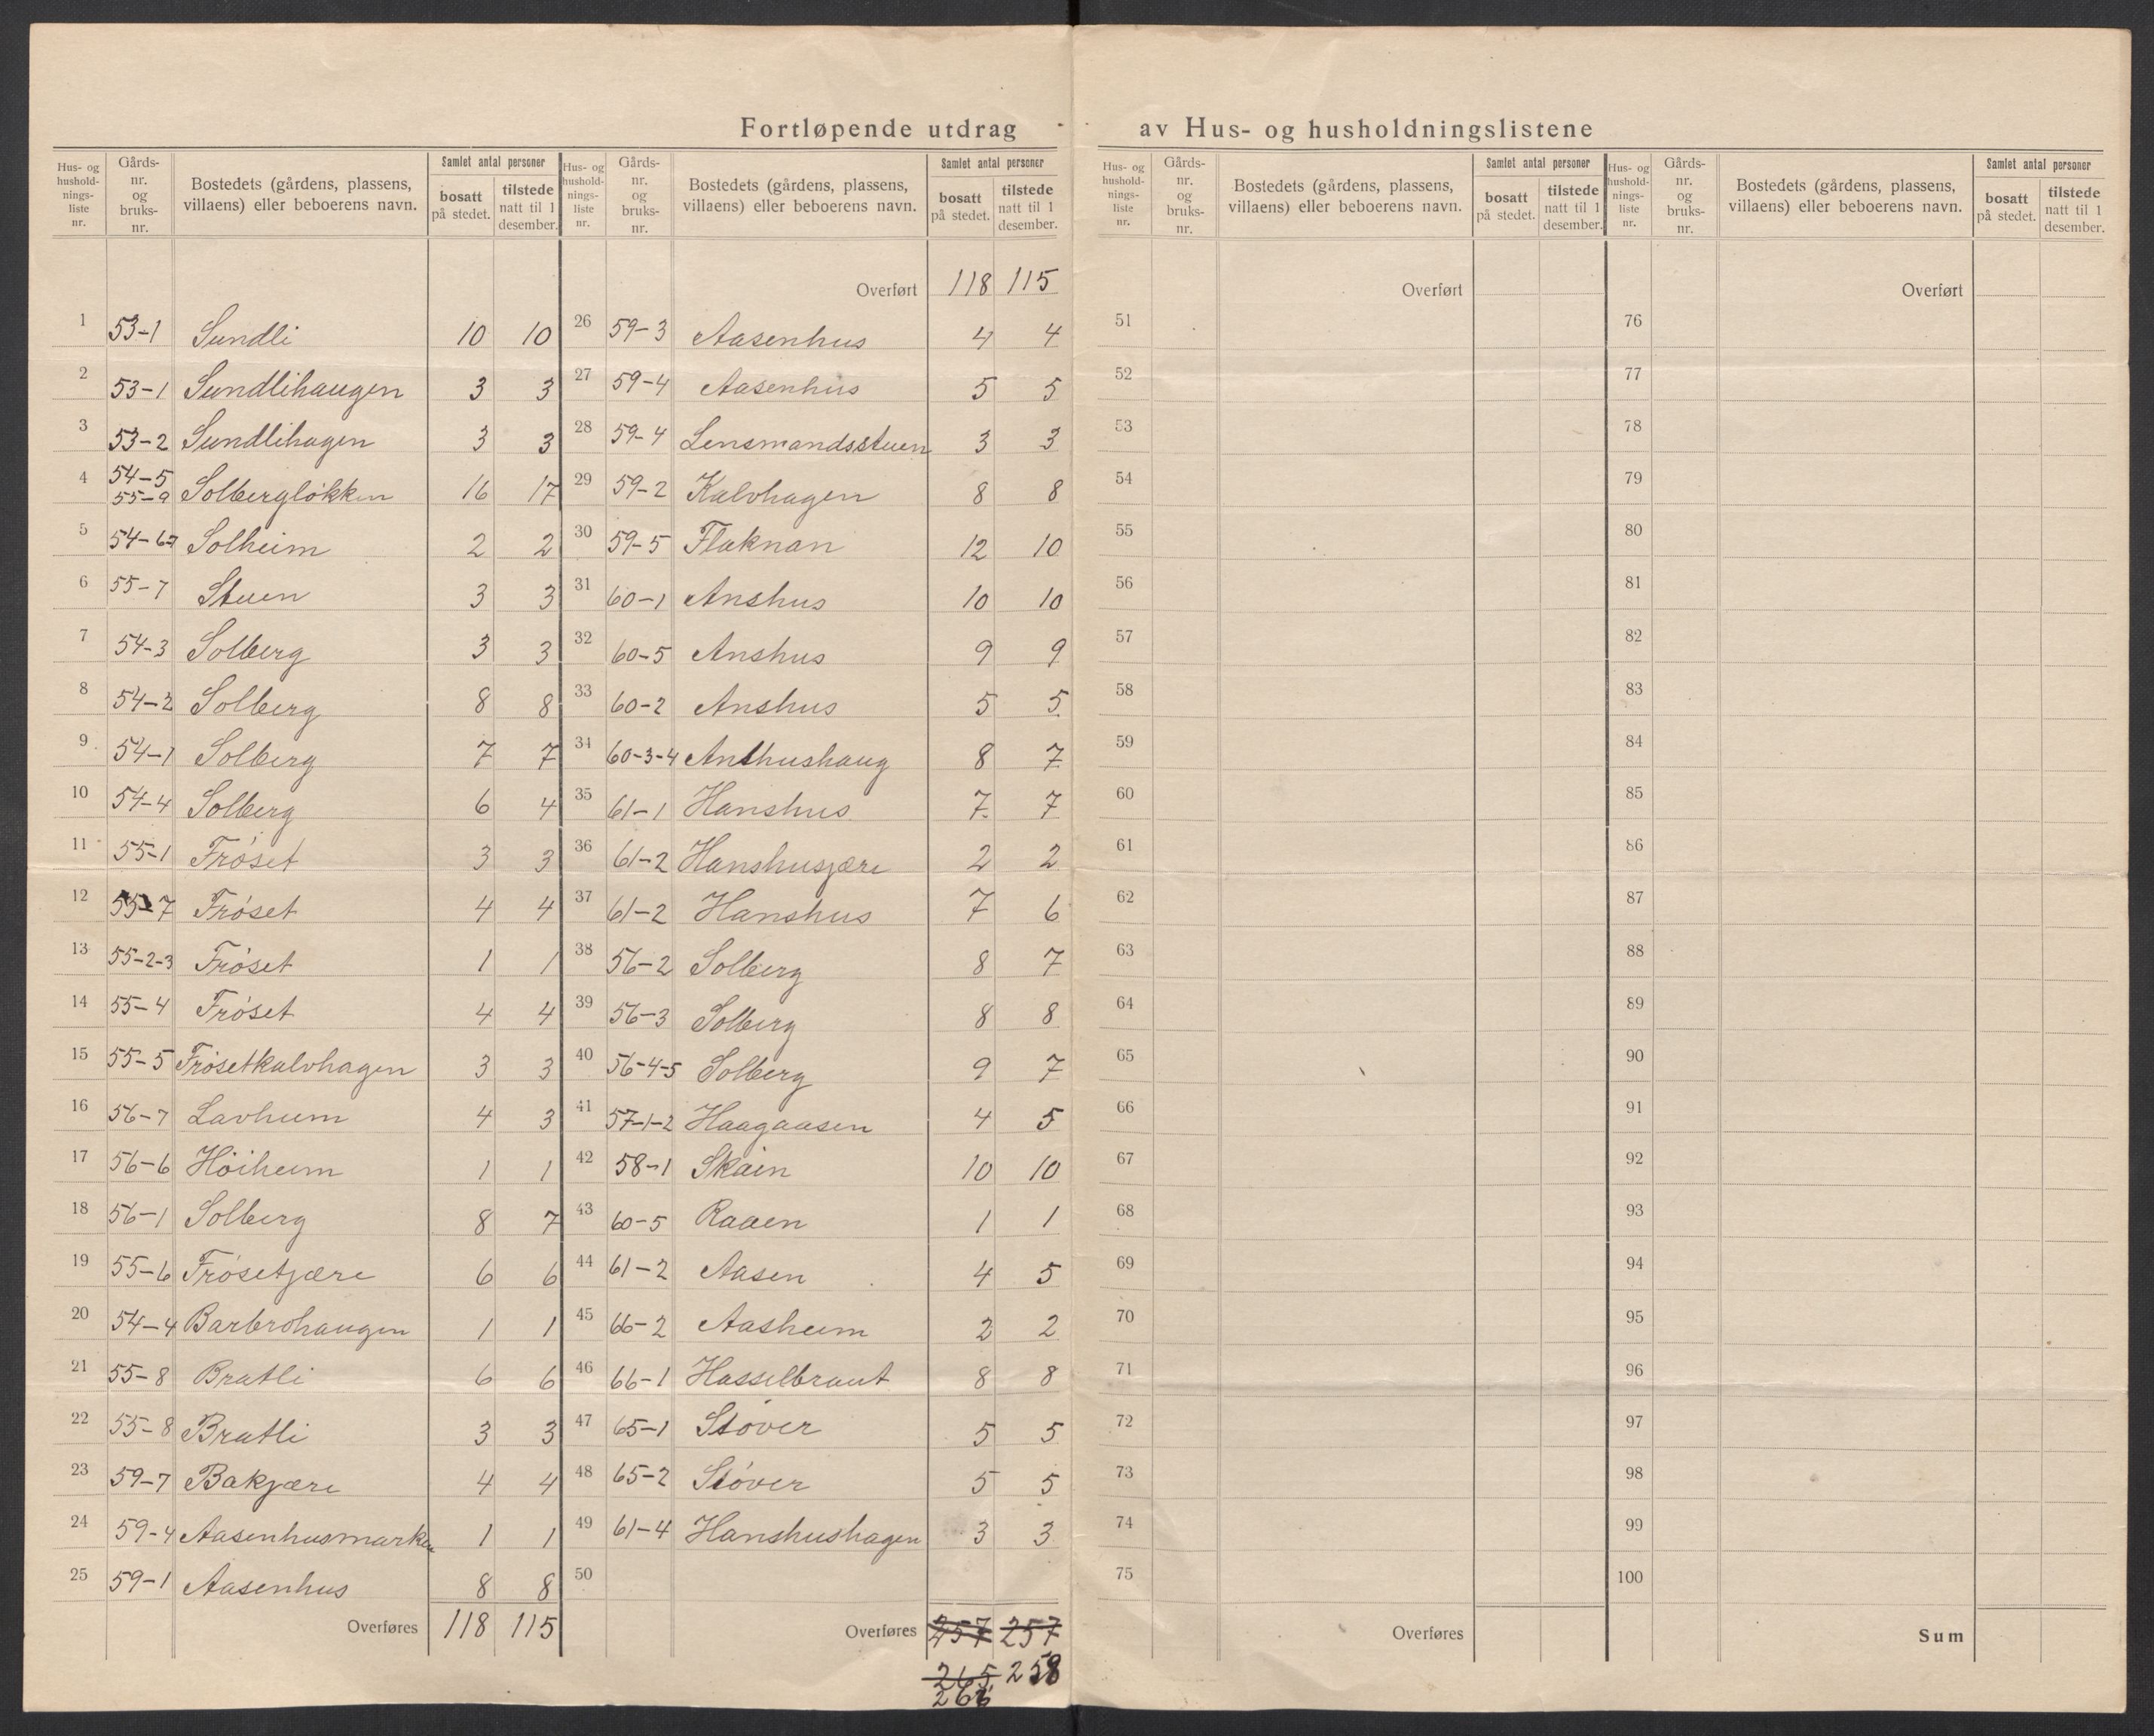 Fortløpende utdrag av Hus- og husholdningslistene
Hus- og husholdnings-liste nr. | Gårds-nr. og bruks-nr. | Bostedets (gårdens, plassens, villaens) eller beboerens navn. | Samlet antal personer | bosatt på stedet. | tilstede natt til 1 desember.
1 53-1 Sundli 10 10
2 53-1 Sundlihaugen 3 3
3 53-2 Sundlihagen 3 3
4 54-5 55-9 Solbergløkken 16 17
5 54-67 Solheim 2 2
6 55-7 Stuen 3 3
7 54-3 Solberg 3 3
8 54-2 Solberg 8 8
9 54-1 Solberg 7 7
10 54-4 Solberg 6 4
11 55-1 Frøset 3 3
12 55-7 Frøset 4 4
13 55-2-3 Frøset 1 1
14 55-4 Frøset 4 4
15 55-5 Frøsetkalvhagen 3 3
16 56-7 Lavheim 4 3
17 56-6 Høiheim 1 1
18 56-1 Solberg 8 7
19 55-6 Frøsetjære 6 6
20 54-4 Barbrohaugen 1 1
21 55-8 Bratli 6 6
22 55-8 Bratli 3 3
23 59-7 Bakjære 4 4
24 59-4 Aasenhusmarken 1 1
25 59-1 Aasenhus 8 8
Overføres 118 115
Hus- og husholdnings-liste nr. | Gårds-nr. og bruks-nr. | Bostedets (gårdens, plassens, villaens) eller beboerens navn. | Samlet antal personer | bosatt på stedet. | tilstede natt til 1 desember.
Overført 118 115
26 59-3 Aasenhus 4 4
27 59-4 Aasenhus 5 5
28 59-4 Lensmandsstuen 3 3
29 59-2 Kalvhagen 8 8
30 59-5 Flaknan 12 10
31 60-1 Anshus 10 10
32 60-5 Anshus 9 9
33 60-2 Anshus 5 5
34 60-3-4 Anshushaug 8 7
35 61-1 Hanshus 7 7
36 61-2 Hanshusjære 2 2
37 61-2 Hanshus 7 6
38 56-2 Solberg 8 7
39 56-3 Solberg 8 8
40 56-4-5 Solberg 9 7
41 57-1-2 Haagaasen 4 5
42 58-1 Skain 10 10
43 60-5 Raaen 1 1
44 61-2 Aasen 4 5
45 66-2 Aasheim 2 2
46 66-1 Hasselbraut 8 8
47 65-1 Støver 5 5
48 65-2 Støver 5 5
49 61-4 Hanshushagen 3 3
50
Overføres 257 257
265 258
266
Hus- og husholdnings-liste nr. | Gårds-nr. og bruks-nr. | Bostedets (gårdens, plassens, villaens) eller beboerens navn. | Samlet antal personer | bosatt på stedet. | tilstede natt til 1 desember.
Overført
51
52
53
54
55
56
57
58
59
60
61
62
63
64
65
66
67
68
69
70
71
72
73
74
75
Overføres
Hus- og husholdnings-liste nr. | Gårds-nr. og bruks-nr. | Bostedets (gårdens, plassens, villaens) eller beboerens navn. | Samlet antal personer | bosatt på stedet. | tilstede natt til 1 desember.
Overført
76
77
78
79
80
81
82
83
84
85
86
87
88
89
90
91
92
93
94
95
96
97
98
99
100
Sum